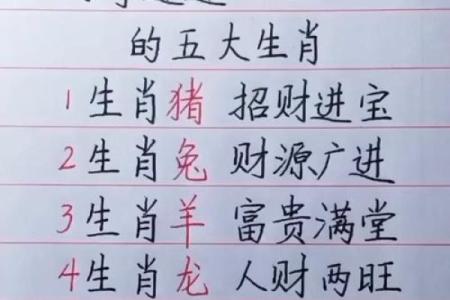 的五大生肖
1生肖猪 招财进宝
2生肖兔 财源广进
3生肖羊 富贵满堂
4生肖龙 人财两旺